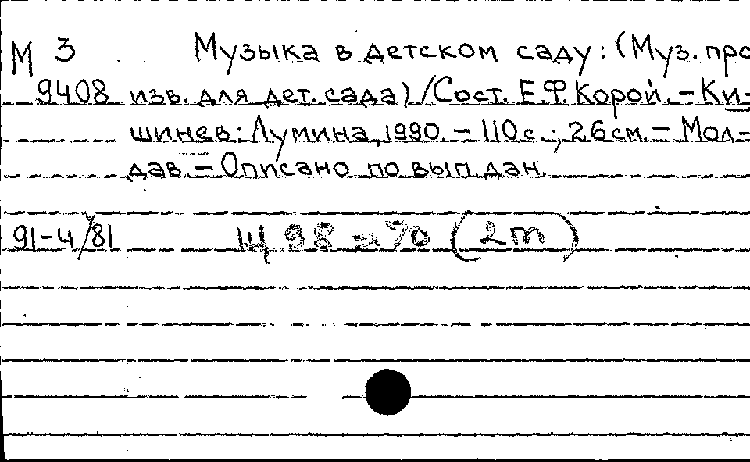 М 3 Музыка в детском саду: (Муз. про
9408 изв. для дет. сада) / Сост. Е.Ф. Корой. - Ки-
шинев: Лумина, 1990. - 110с.; 26см. - Мол-
дав. - Описано по вып. дан.
91-4/81 Щ 98 (2т)